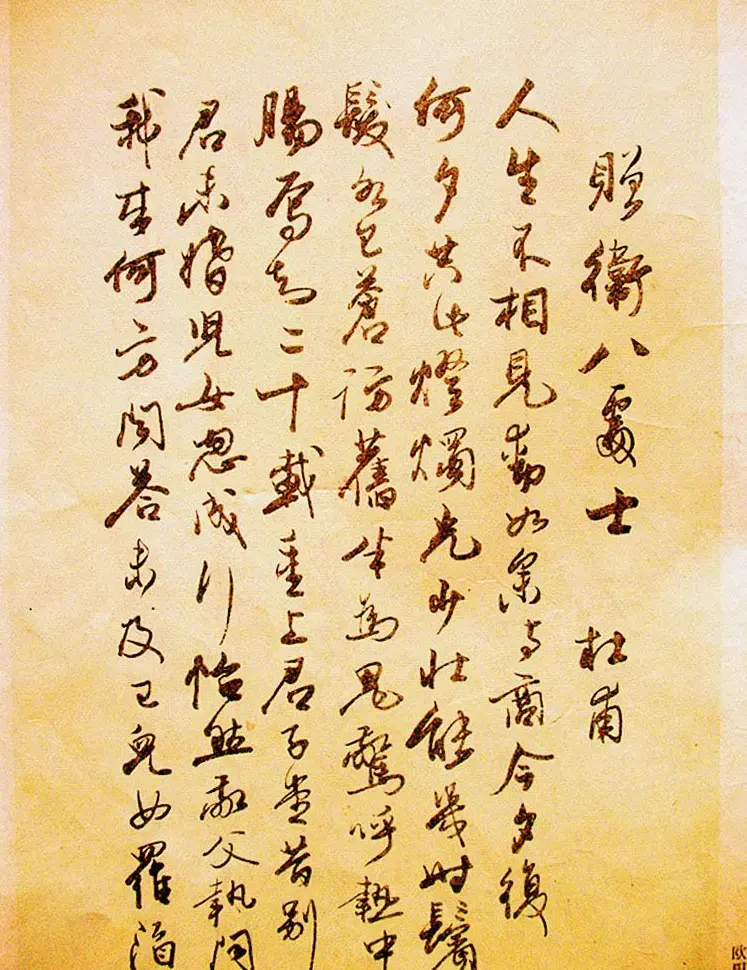 贈衛八處士 杜甫
人生不相見動如參与商今夕復
何夕共此燈燭光少壯能幾時鬢
髮各已蒼訪舊半為鬼驚呼熱中
腸焉知二十載重上君子堂昔別
君未婚兒女忽成行怡然敬父執問
我來何方問荅未及已兒女羅酒
欧